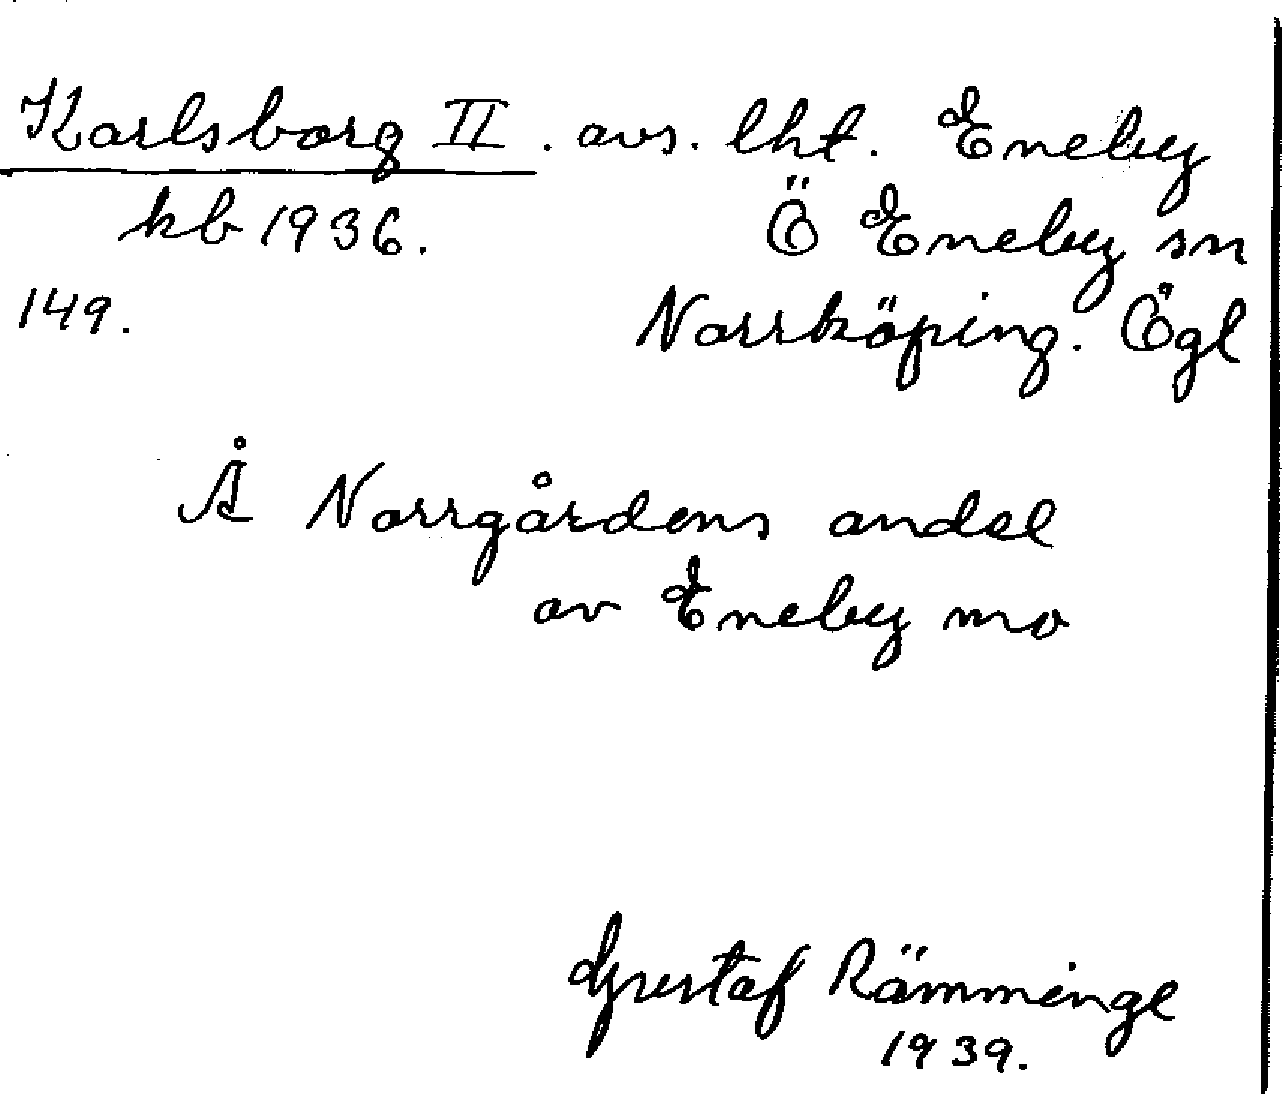 Karlsborg II. avs. lht. Eneby
kb 1936. Ö Eneby sn
149. Norrköping. Ögl
Å Norrgårdens andel
av Eneby mo
Gustaf Rämminge
1939.